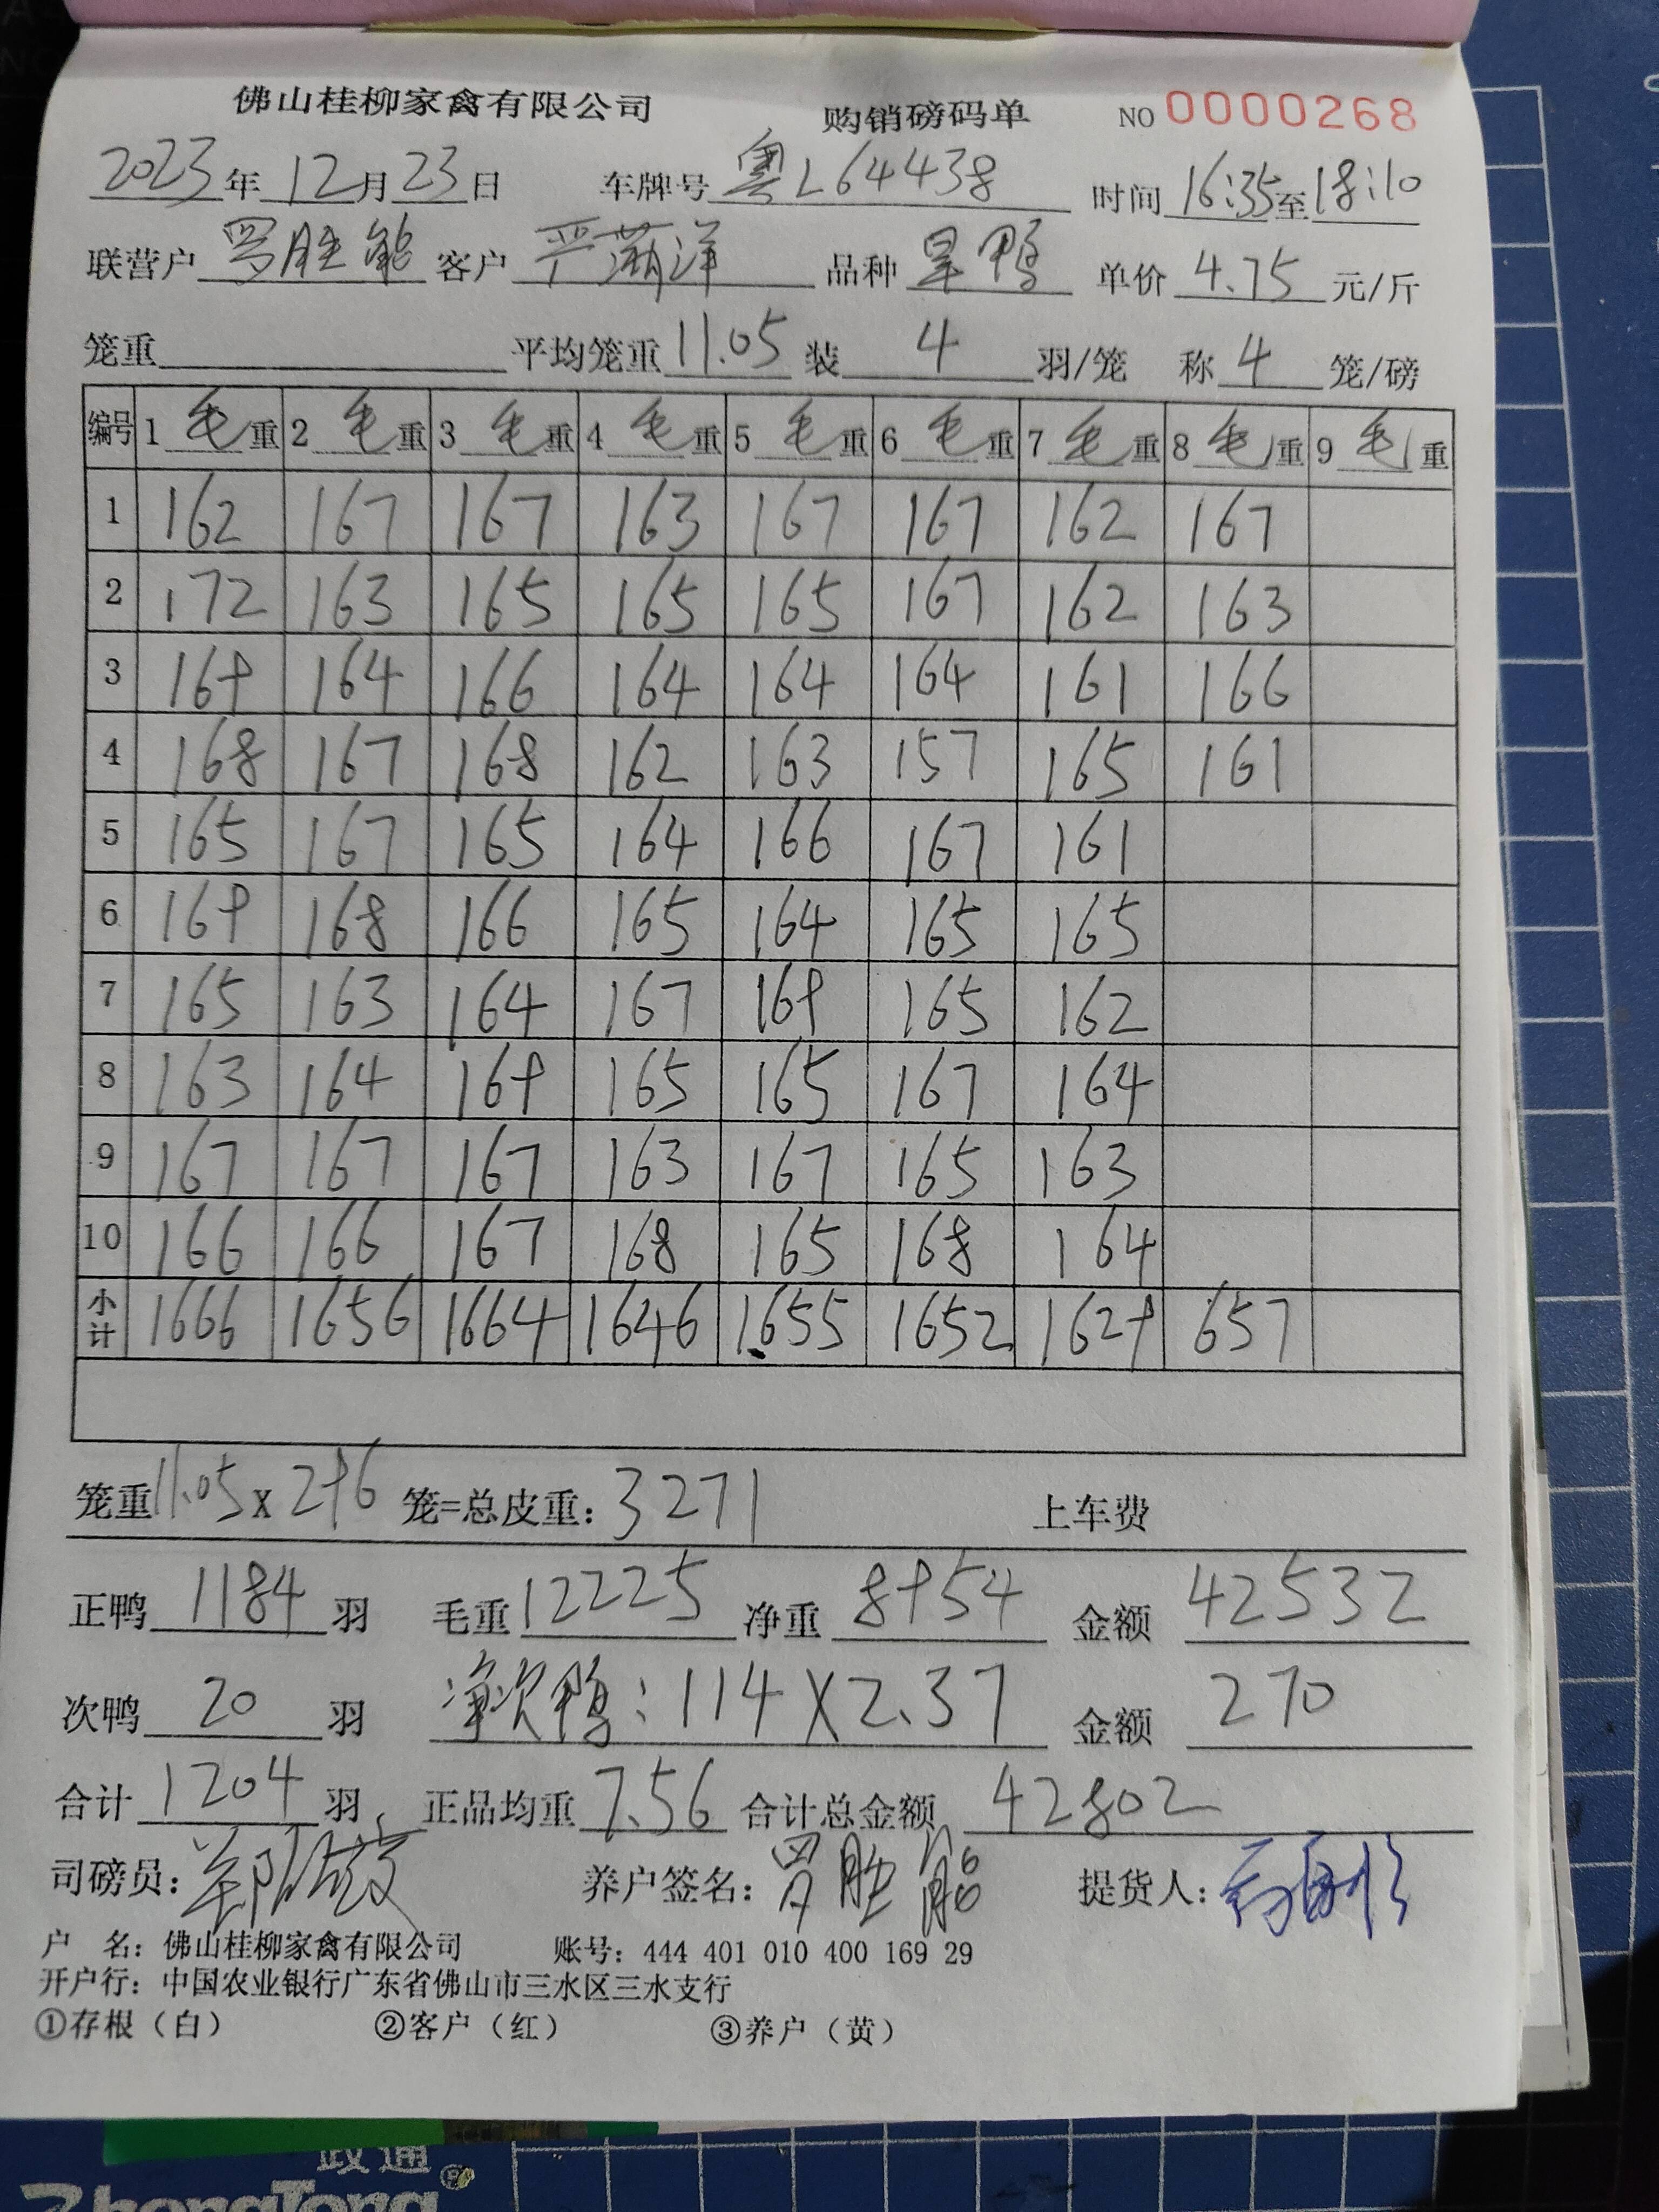 佛山桂柳家禽有限公司 购销磅码单 NO 0000268
2023年12月23日 车牌号 粤L64438 时间 16:35至18:10
联营户 罗胜能 客户 严满洋 品种 旱鸭 单价 4.75 元/斤
笼重 平均笼重 11.05 装 4 羽/笼 称 4 笼/磅
编号 1 毛重 2 毛重 3 毛重 4 毛重 5 毛重 6 毛重 7 毛重 8 毛重 9 毛重
1 162 167 167 163 167 167 162 167
2 172 163 165 165 165 167 162 163
3 169 164 166 164 164 164 161 166
4 168 167 168 162 163 157 165 161
5 165 167 165 164 166 167 161
6 169 168 166 165 164 165 165
7 165 163 164 167 169 165 162
8 163 164 169 165 165 167 164
9 167 167 167 163 167 165 163
10 166 166 167 168 165 168 164
小计 1666 1656 1664 1646 1655 1652 1629 657
笼重 11.05 X 296 笼=总皮重: 3271 上车费
正鸭 1184 羽 毛重 12225 净重 8954 金额 42532
次鸭 20 羽 净次鸭: 114 X 2.37 金额 270
合计 1204 羽 正品均重 7.56 合计总金额 42802
司磅员: 养户签名: 罗胜能 提货人:
户 名: 佛山桂柳家禽有限公司 账号: 444 401 010 400 169 29
开户行: 中国农业银行广东省佛山市三水区三水支行
①存根（白） ②客户（红） ③养户（黄）
政通
ZhengTong ®